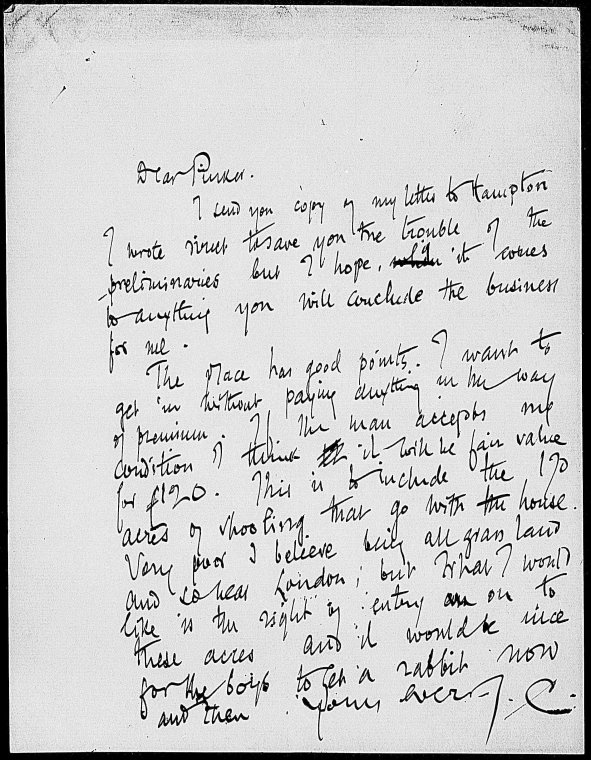 Dear Pinker.
I send you copy of my letter to Hampton
I wrote direct to save you the trouble of the
preliminaries but I hope, if it comes
to anything you will conclude the business
for me.
The place has good points. I want to
get in without paying anything in the way
of premium. If the man accepts my
condition I think it will be fair value
for £120. This is to include the 170
acres of shooting that go with the house.
Very poor I believe being all grass land
and so near London; but what I would
like is the right of entry on to
these acres and it would be nice
for the boys to get a rabbit now
and then. Yours ever J. C.